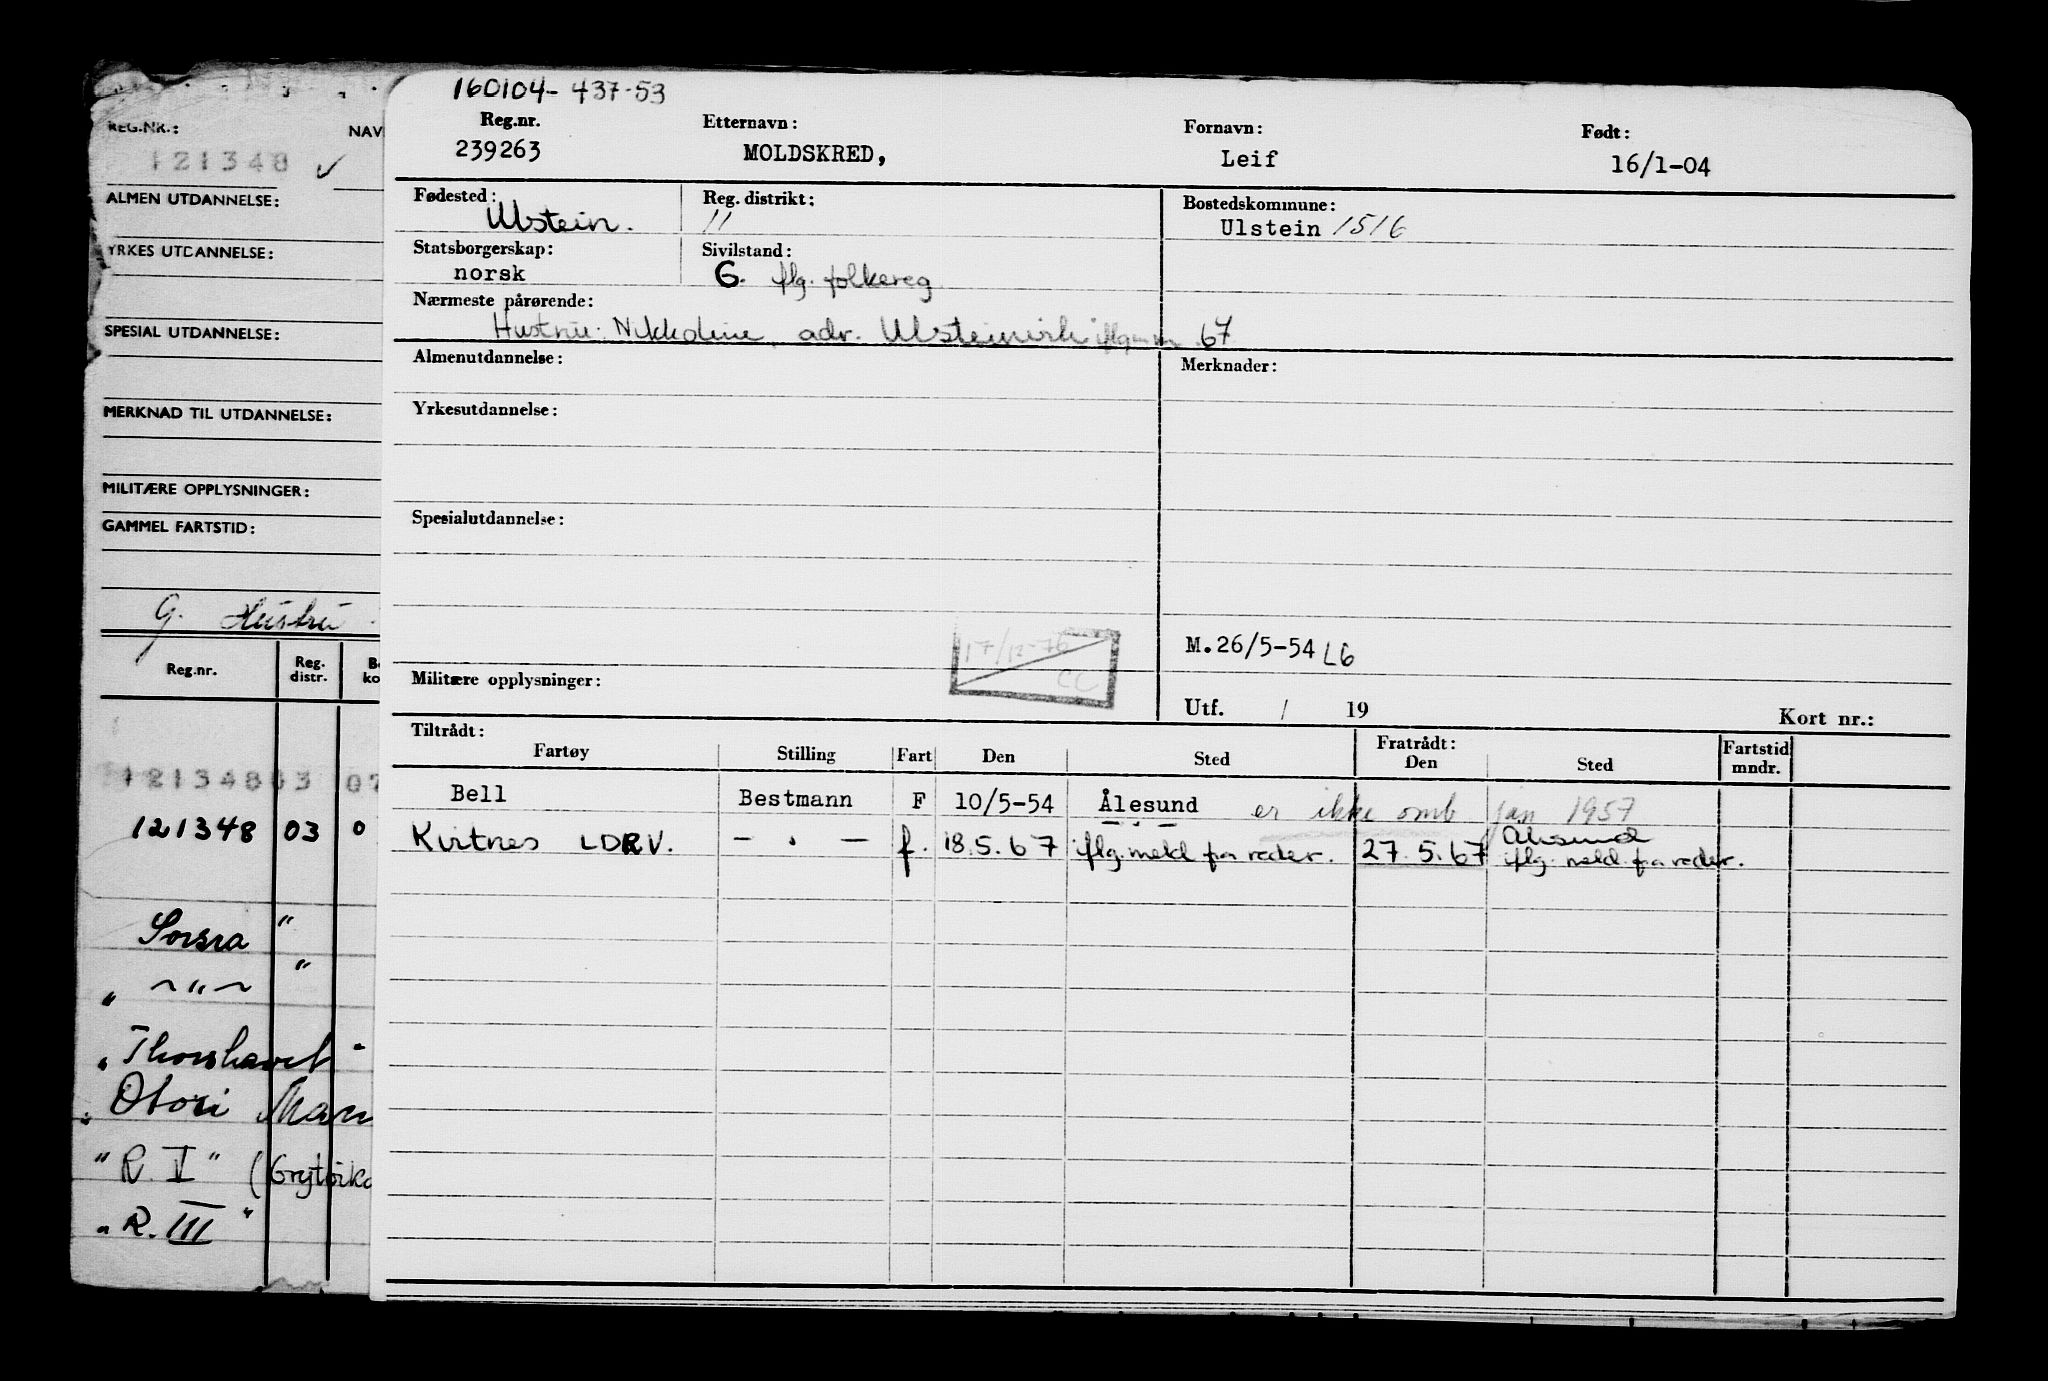 160104-437-53
Reg.nr. Etternavn: Fornavn: Født:
239263 MOLDSKRED, Leif 16/1-04
Fødested: Reg. distrikt: Bostedskommune:
Ulstein. 11 Ulstein 1516
Statsborgerskap: Sivilstand:
norsk G. flg. folkereg
Nærmeste pårørende:
Hustru: Nikkoline, adr. 67
Almenutdannelse: Merknader:
Yrkesutdannelse:
Spesialutdannelse:
17/12-76
CC
M.26/5-54 LG
Militære opplysninger:
Utf. / 19 Kort nr.:
Tiltrådt: Fratrådt: Fartstid
Fartøy Stilling Fart Den Sted Den Sted mndr.
Bell Bestmann F 10/5-54 Ålesund er ikke omb jan 1957
Kvitnes LDRV. — " — f. 18.5.67 iflg. meld fra reder. 27.5.67 Ålesund
iflg. meld fra reder.
REG.NR.: NAV
121348 ✓
ALMEN UTDANNELSE:
YRKES UTDANNELSE:
SPESIAL UTDANNELSE:
MERKNAD TIL UTDANNELSE:
MILITÆRE OPPLYSNINGER:
GAMMEL FARTSTID:
G. Hustru
Reg.nr. Reg. distr. B ko
121348 03 07
121348 03 0
Sorsra "
" ~"~ "
"Thorshavet"
"R. V" (Grytvik
"R. III"